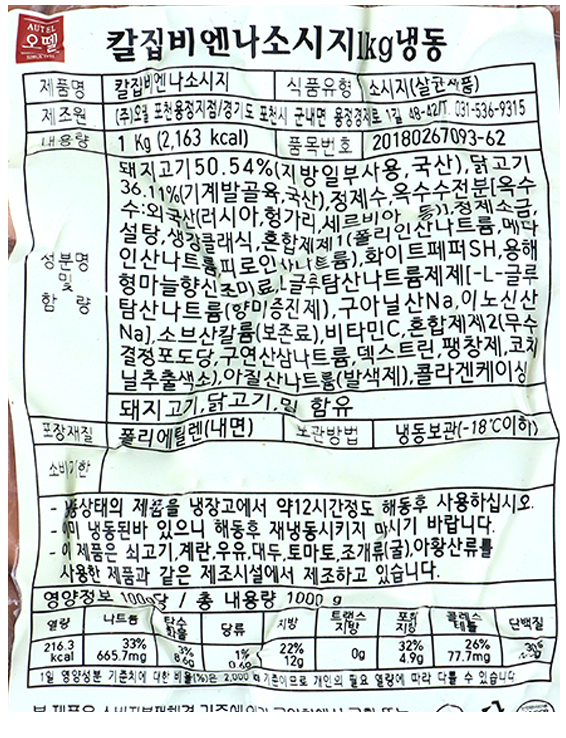 AUTEL
오뗄
SINCE 1990
칼집비엔나소시지1kg냉동
제품명 칼집비엔나소시지 식품유형 소시지(살균제품)
제조원 (주)오뗄 포천용정지점/경기도 포천시 군내면 용정경제로 1길 48-42/T. 031-536-9315
내용량 1 Kg (2,163 kcal) 품목번호 20180267093-62
성분명 및 함 량
돼지고기50.54%(지방일부사용,국산),닭고기
36.11%(기계발골육,국산),정제수,옥수수전분[옥수
수:외국산(러시아,헝가리,세르비아 등)],정제소금,
설탕,생강클래식,혼합제제1(폴리인산나트륨,메타
인산나트륨피로인산나트륨),화이트페퍼SH,용해
형마늘향신조미료,L글루탐산나트륨제제[-L-글루
탐산나트륨(향미증진제),구아닐산Na,이노신산
Na],소브산칼륨(보존료),비타민C,혼합제제2(무수
결정포도당,구연산삼나트륨,덱스트린,팽창제,코치
닐추출색소),아질산나트륨(발색제),콜라겐케이싱
돼지고기,닭고기,밀 함유
포장재질 폴리에틸렌(내면) 보관방법 냉동보관(-18℃이하)
소비기한
- 냉동상태의 제품을 냉장고에서 약12시간정도 해동후 사용하십시오.
- 이미 냉동된바 있으니 해동후 재냉동시키지 마시기 바랍니다.
- 이 제품은 쇠고기,계란,우유,대두,토마토,조개류(굴),아황산류를
사용한 제품과 같은 제조시설에서 제조하고 있습니다.
영양정보 100g당 / 총 내용량 1000 g
열량 나트륨 탄수화물 당류 지방 트랜스지방 포화지방 콜레스테롤 단백질
216.3 kcal 33% 665.7mg 3% 8.6g 1% 0.6g 22% 12g 0g 32% 4.9g 26% 77.7mg
1일 영양성분 기준치에 대한 비율(%)은 2,000 기준이므로 개인의 필요 열량에 따라 다를 수 있습니다